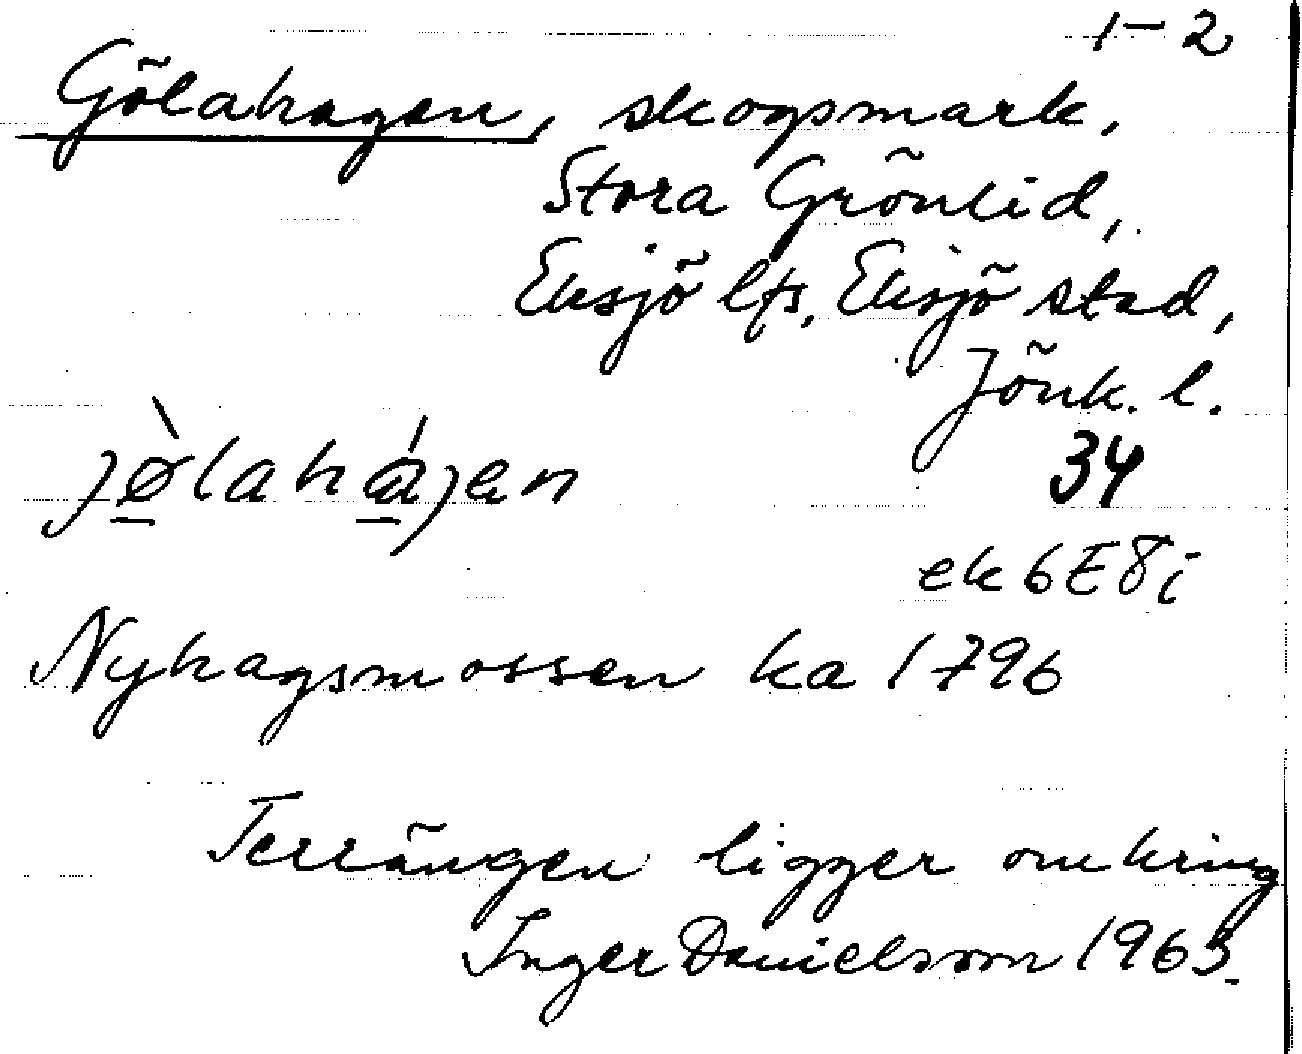 1-2
Gölahagen, skogsmark,
Stora Grönlid,
Eksjö lfs, Eksjö stad,
Jönk. l.
jø̀lahájen
34
ek 6E8i
Nyhagsmossen ka 1796
Terrängen ligger omkring
Inger Danielsson 1963.